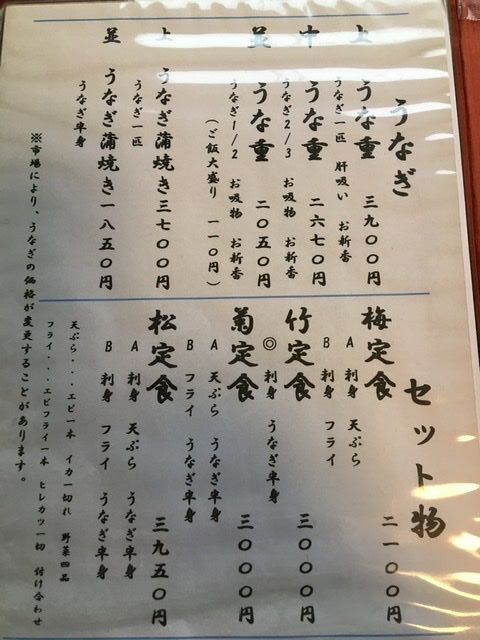 うなぎ
上 うな重 三九〇〇円
うなぎ一匹 肝吸い お新香
中 うな重 二六七〇円
うなぎ2/3 お吸物 お新香
並 うな重 二〇五〇円
うなぎ1/2 お吸物 お新香
(ご飯大盛り 一一〇円)
上 うなぎ蒲焼き 三七〇〇円
うなぎ一匹
並 うなぎ蒲焼き 一八五〇円
うなぎ半身
※市場により、うなぎの価格が変更することがあります。
セット物
梅定食 二一〇〇円
A 刺身 天ぷら
B 刺身 フライ
竹定食 三〇〇〇円
◎ 刺身 うなぎ半身
菊定食 三〇〇〇円
A 天ぷら うなぎ半身
B フライ うなぎ半身
松定食 三九五〇円
A 刺身 天ぷら うなぎ半身
B 刺身 フライ うなぎ半身
天ぷら・・・エビ一本 イカ一切れ 野菜四品
フライ・・・エビフライ一本 ヒレカツ一切 付け合わせ